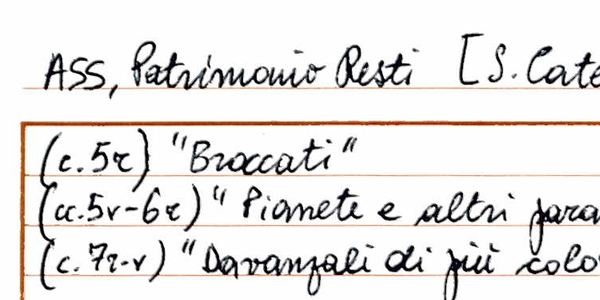 ASS, Patrimonio Resti [S. Cate
(c.5r) "Broccati"
(cc.5v-6r) "Pianete e altri para
(c. 7r-v) "Davanzali di più colo